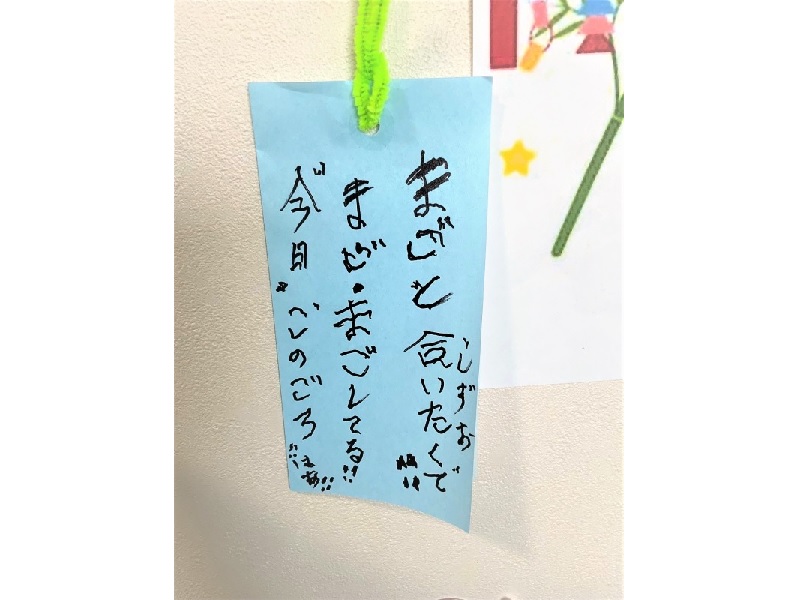 まごと合いたくて
まご・まごしてる!!
今日"このごろ
しずお